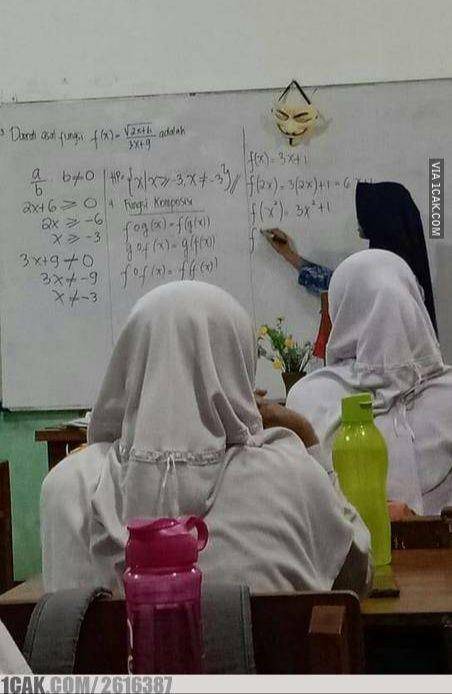 Daerah asal fungsi f(x) = √2x+6 / 3x+9 adalah
a/b b≠0
2x+6 ⩾ 0
2x ⩾ -6
x ⩾ -3
3x+9 ≠ 0
3x ≠ -9
x ≠ -3
HP = {x|x ⩾ -3, x ≠ -3}
Fungsi Komposisi
fog(x) = f(g(x))
gof(x) = g(f(x))
fof(x) = f(f(x))
f(x) = 3x+1
f(2x) = 3(2x)+1 = 6
f(x²) = 3x²+1
f
VIA 1CAK.COM
1CAK.COM/2616387